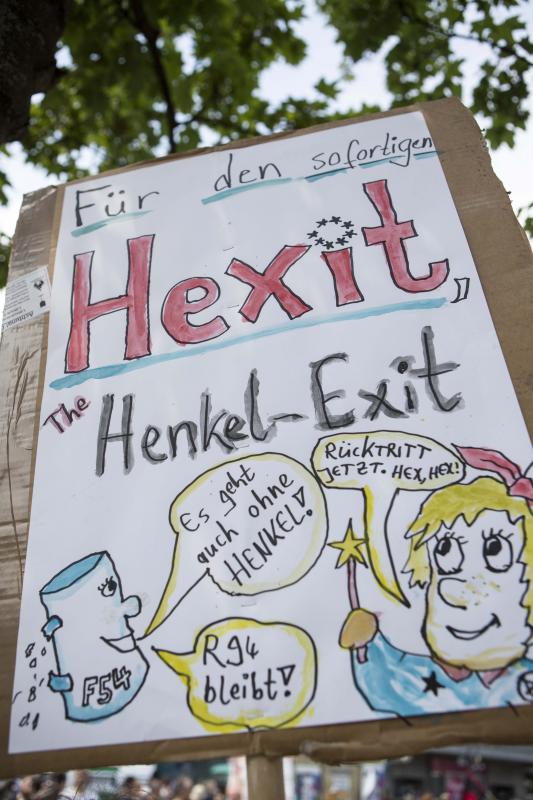 Für den sofortigen
Hexit,
The Henkel-Exit
RÜCKTRITT
JETZT. HEX, HEX!
Es geht
auch ohne
HENKEL!
R94
bleibt!
F54